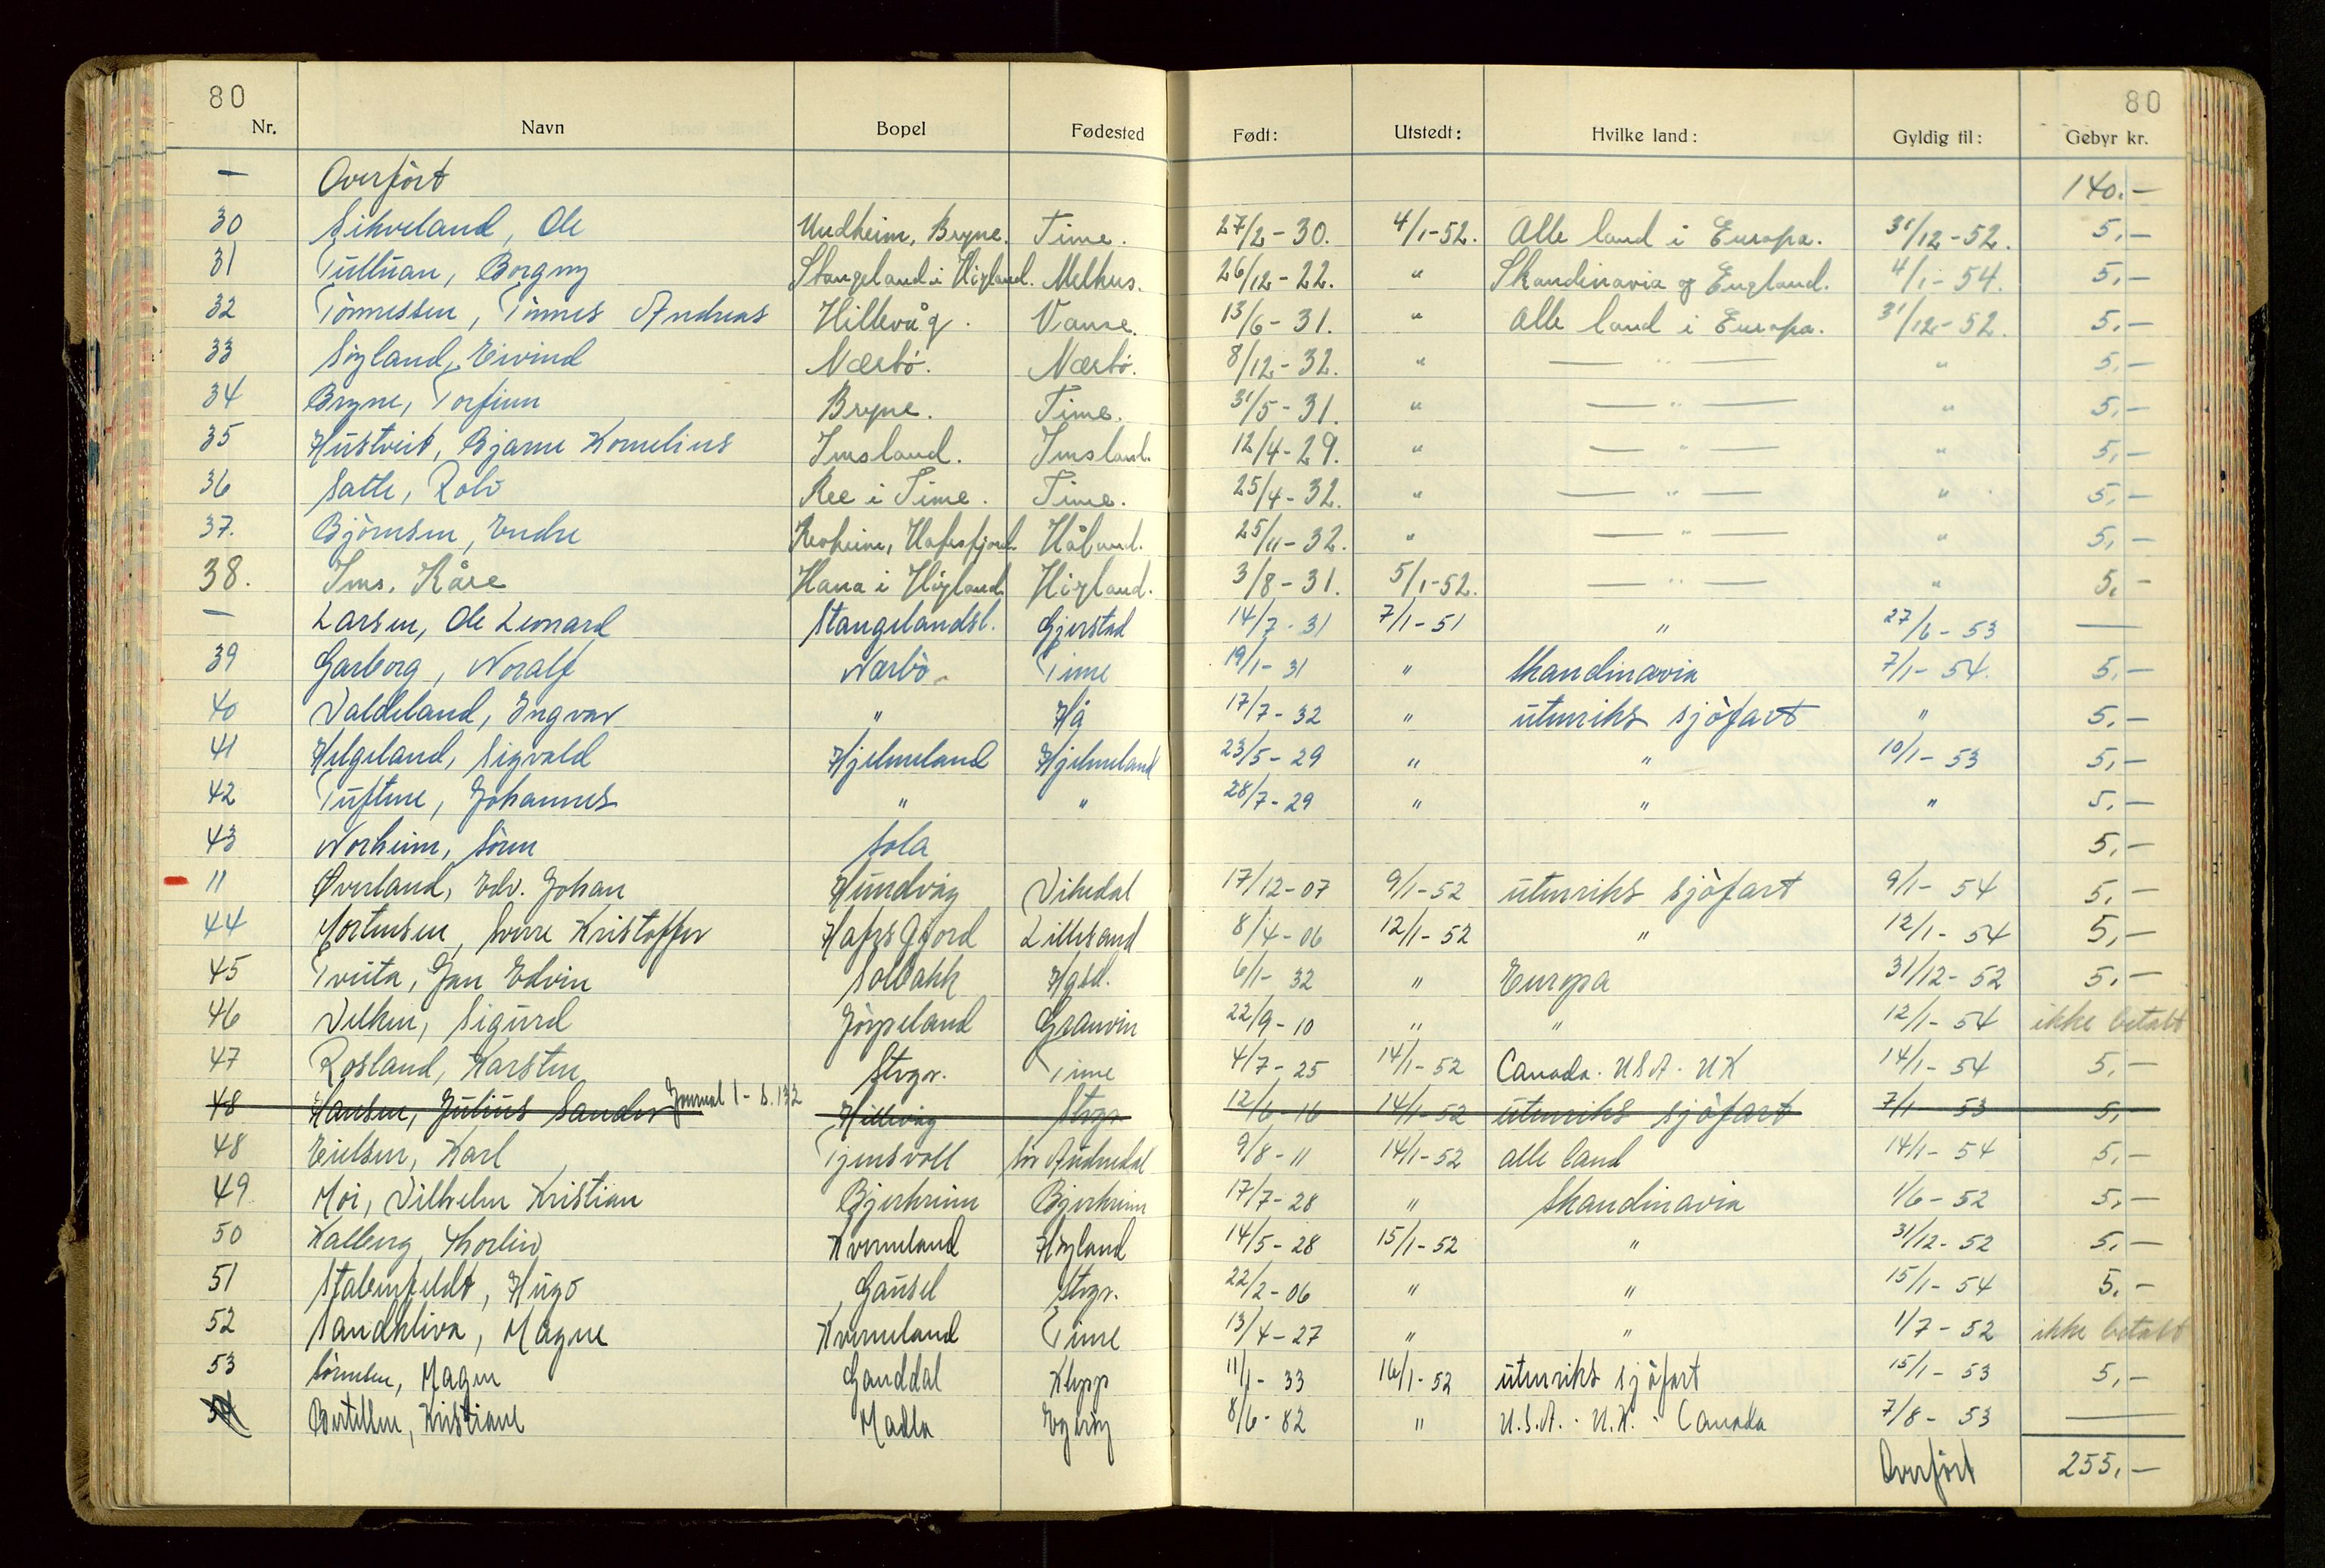 80 80
Nr. Navn Bopel Fødested Født: Utstedt: Hvilke land: Gyldig til: Gebyr kr.
— Overført 140.—
30 Sikveland, Ole Undheim, Bryne. Time. 27/2-30. 4/1-52. Alle land i Europa. 31/12-52. 5,—
31 Tulluan, Borgny Stangeland i Høyland. Melhus. 26/12-22. " Skandinavia og England. 4/1-54. 5,—
32 Tønnessen, Tønnes Andreas Hillevåg. Vanse. 13/6-31. " Alle land i Europa. 31/12-52. 5,—
33 Søyland, Eivind Nærbø. Nærbø. 8/12-32. " — " — " 5,—
34 Bryne, Torfinn Bryne. Time. 31/5-31. " — " — " 5,—
35 Hustveit, Bjarne Kornelius Imsland. Imsland. 12/4-29. " — " — " 5,—
36 Salte, Rolv Ree i Time. Time. 25/4-32. " — " — " 5,—
37. Bjørnsen, Endre Hafrsfjord. Håland. 25/11-32. " — " — " 5,—
38. Ims, Kåre Hana i Høyland. Høyland. 3/8-31. 5/1-52. — " — " 5,-
— Larsen, Ole Leonard Stangelandsl. Gjerstad 14/7-31 7/1-51 " 27/6-53 —
39 Garborg, Noralf Nærbø. Time 19/1-31 " Skandinavia 7/1-54. 5,—
40 Valdeland, Ingvar " Hå 17/7-32 " utenriks sjøfart " 5,—
41 Helgeland, Sigvald Hjelmeland Hjelmeland 23/5-29 " " 10/1-53 5,—
42 Tuftene, Johannes " " 28/7-29 " " " 5,—
43 Norheim, Søren Sola 5,—
11 Øverland, Edv. Johan Hundvåg Vikedal 17/12-07 9/1-52 utenriks sjøfart 9/1-54 5,—
44 Mortensen, Sverre Kristoffer Hafrsfjord Lillesand 8/4-06 12/1-52 " 12/1-54 5,—
45 Tveita, Jan Edvin Solbakk Hgsd. 6/1-32 " Europa 31/12-52 5,—
46 Velken, Sigurd Jørpeland Granvin 22/9-10 " " 12/1-54 ikke betalt
47 Rosland, Karsten Stvgr. Time 4/7-25 14/1-52 Canada. USA. UK 14/1-54 5,—
48 Hansen, Julius Sander Journal 1-s.132 Hillevåg Stvgr 12/6-16 14/1-52 utenriks sjøfart 7/1-53 5,-
48 Eielsen, Karl Tjensvoll Sør Audnedal 9/8-11 14/1-52 alle land 14/1-54 5,—
49 Moi, Vilhelm Kristian Bjerkreim Bjerkreim 17/7-28 " Skandinavia 1/6-52 5,—
50 Kalberg, Thorleiv Kverneland Høyland 14/5-28 15/1-52 " 31/12-52 5,—
51 Stabenfeldt, Hugo Gausel Stvgr. 22/2-06 " " 15/1-54 5.-
52 Sandkleiva, Magne Kverneland Time 13/4-27 " " 1/7-52 ikke betalt
53 Sørensen, Magne Ganddal Klepp 11/1-33 16/1-52 utenriks sjøfart 15/1-53 5,—
54 Bertelsen, Kristiane Madla Egerøy 8/6-82 " U.S.A. - U.K. - Canada 7/8-53 —
Overført 255,—